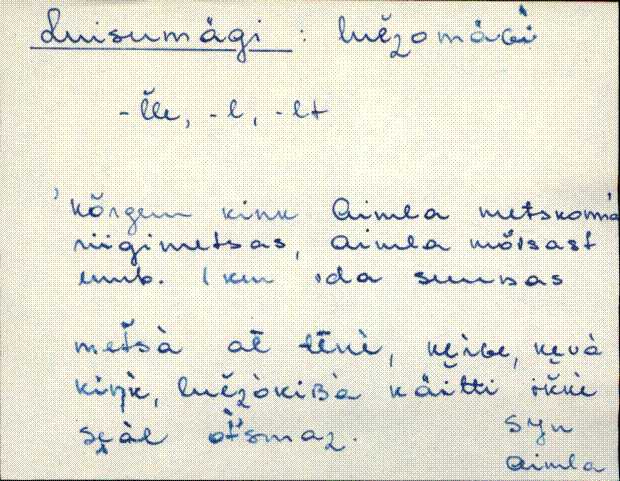 Luisumägi : luĕzomäɢi
-l̆le, -l, -lt
'kõrgem kink Aimla metskonna
riigimetsas, Aimla mõisast
umb. 1 km ida suunas
metsà aĕ, kevà
kiŋk, luĕzòkiвà käitti ikkè
otsmaz.
Syn
Aimla